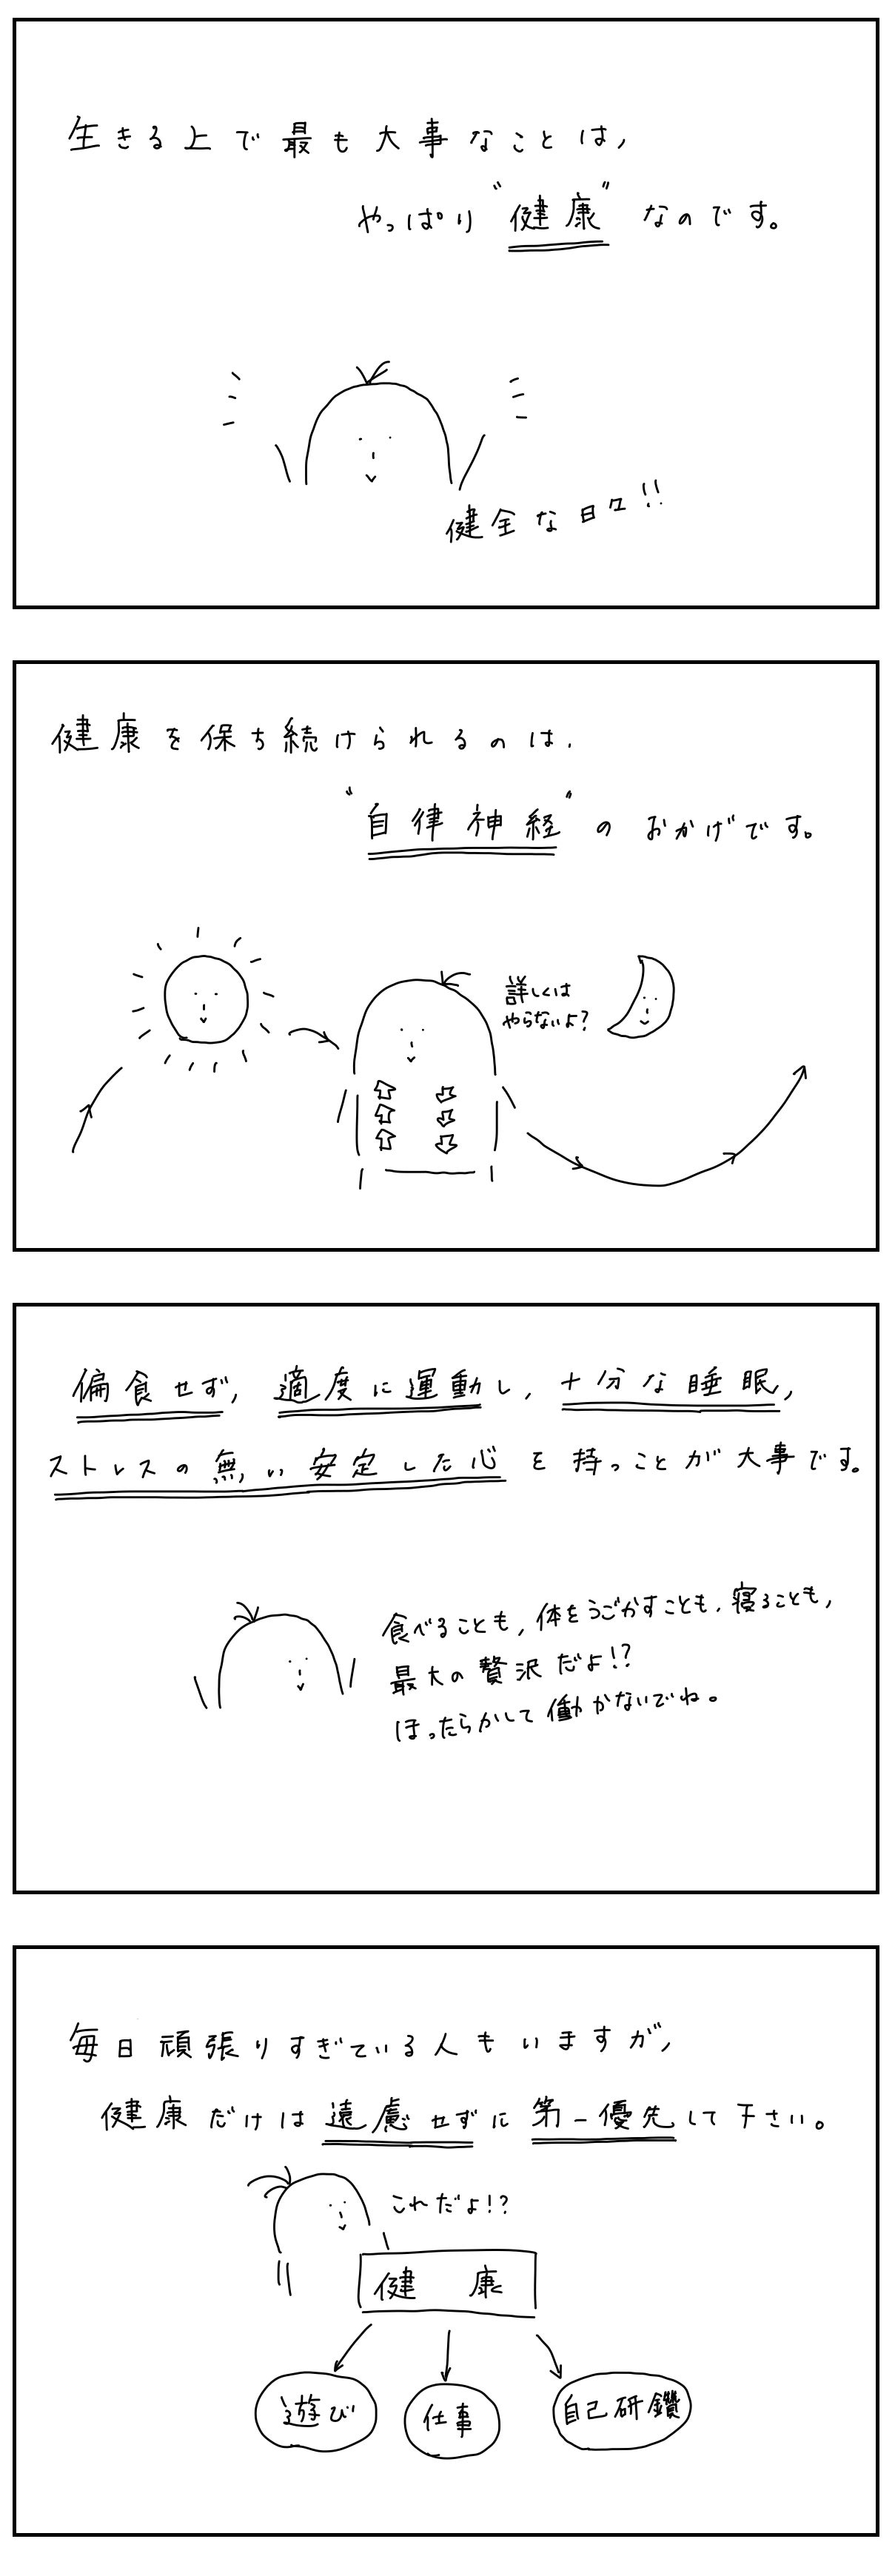 生きる上で最も大事なことは,
やっぱり"健康"なのです。
健全な日々!!
健康を保ち続けられるのは,
"自律神経"のおかげです。
詳しくは
やらないよ?
偏食せず,適度に運動し,十分な睡眠,
ストレスの無い安定した心を持つことが大事です。
食べることも,体をうごかすことも,寝ることも,
最大の贅沢だよ!?
ほったらかして働かないでね。
毎日頑張りすぎている人もいますが,
健康だけは遠慮せずに第一優先して下さい。
これだよ!?
健康
遊び
仕事
自己研鑽